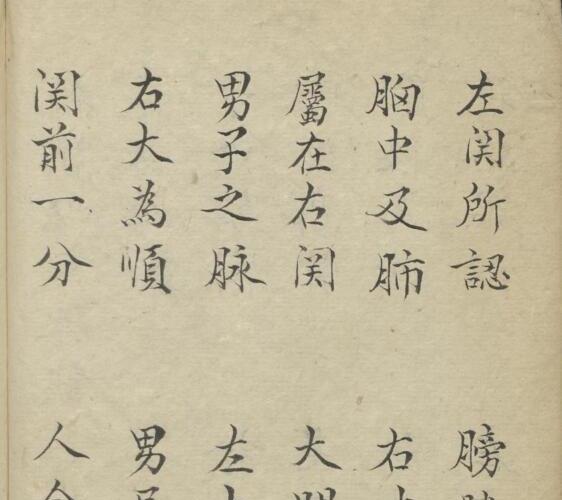 左関所認 膀
胸中及肺 右
屬在右関 大
男子之脉 左
右大為順 男
関前一分 人